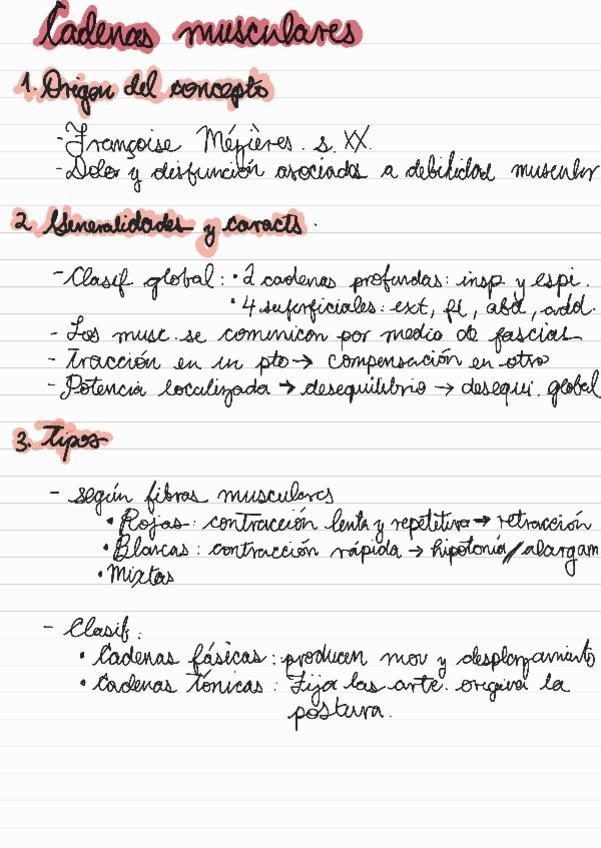 Cadenas musculares
1. Origen del concepto
- Françoise Mézières. s. XX.
- Dolor y disfunción asociadas a debilidad muscular
2 Generalidades y caracts.
- Clasif global: • 2 cadenas profundas: insp y espi.
• 4 superficiales: ext, fl, abd, add.
- Los musc. se comunican por medio de fascias
- Tracción en un pto → compensación en otro
- Potencia localizada → desequilibrio → desequi. global
3. Tipos
- según fibras musculares
• Rojas: contracción lenta y repetitiva → retracción
• Blancas: contracción rápida → hipotonía/alargam
• Mixtas
- Clasif:
• Cadenas fásicas: producen mov y desplazamiento
• Cadenas tónicas: Fija las arte. origina la
postura.